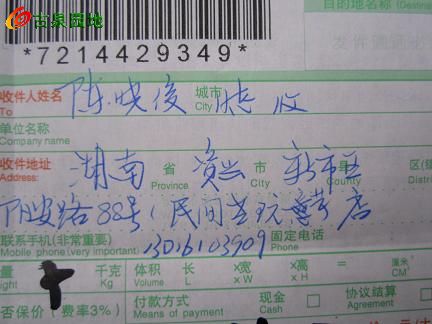 古泉园地
目的地名称 (Destina
*7214429349*
发件
收件人姓名 To 陈晓俊 城市 City 收
单位名称 Company name
收件地址 Address: 湖南 省 Province 资兴 市 City 新市区 县 County 区(镇 Dist
路88号(民间古玩 店
联系手机(非常重要) Mobile phone(very important) 13016103909 固定电话 Phone
量 千克 Kg 体积 Volume 长 L ×宽 ×W ×高 ×H = 厘米³ CM³
否保价 (费率3%) 付款方式 Means of payment 现金 Cash 协议结算 Agreement